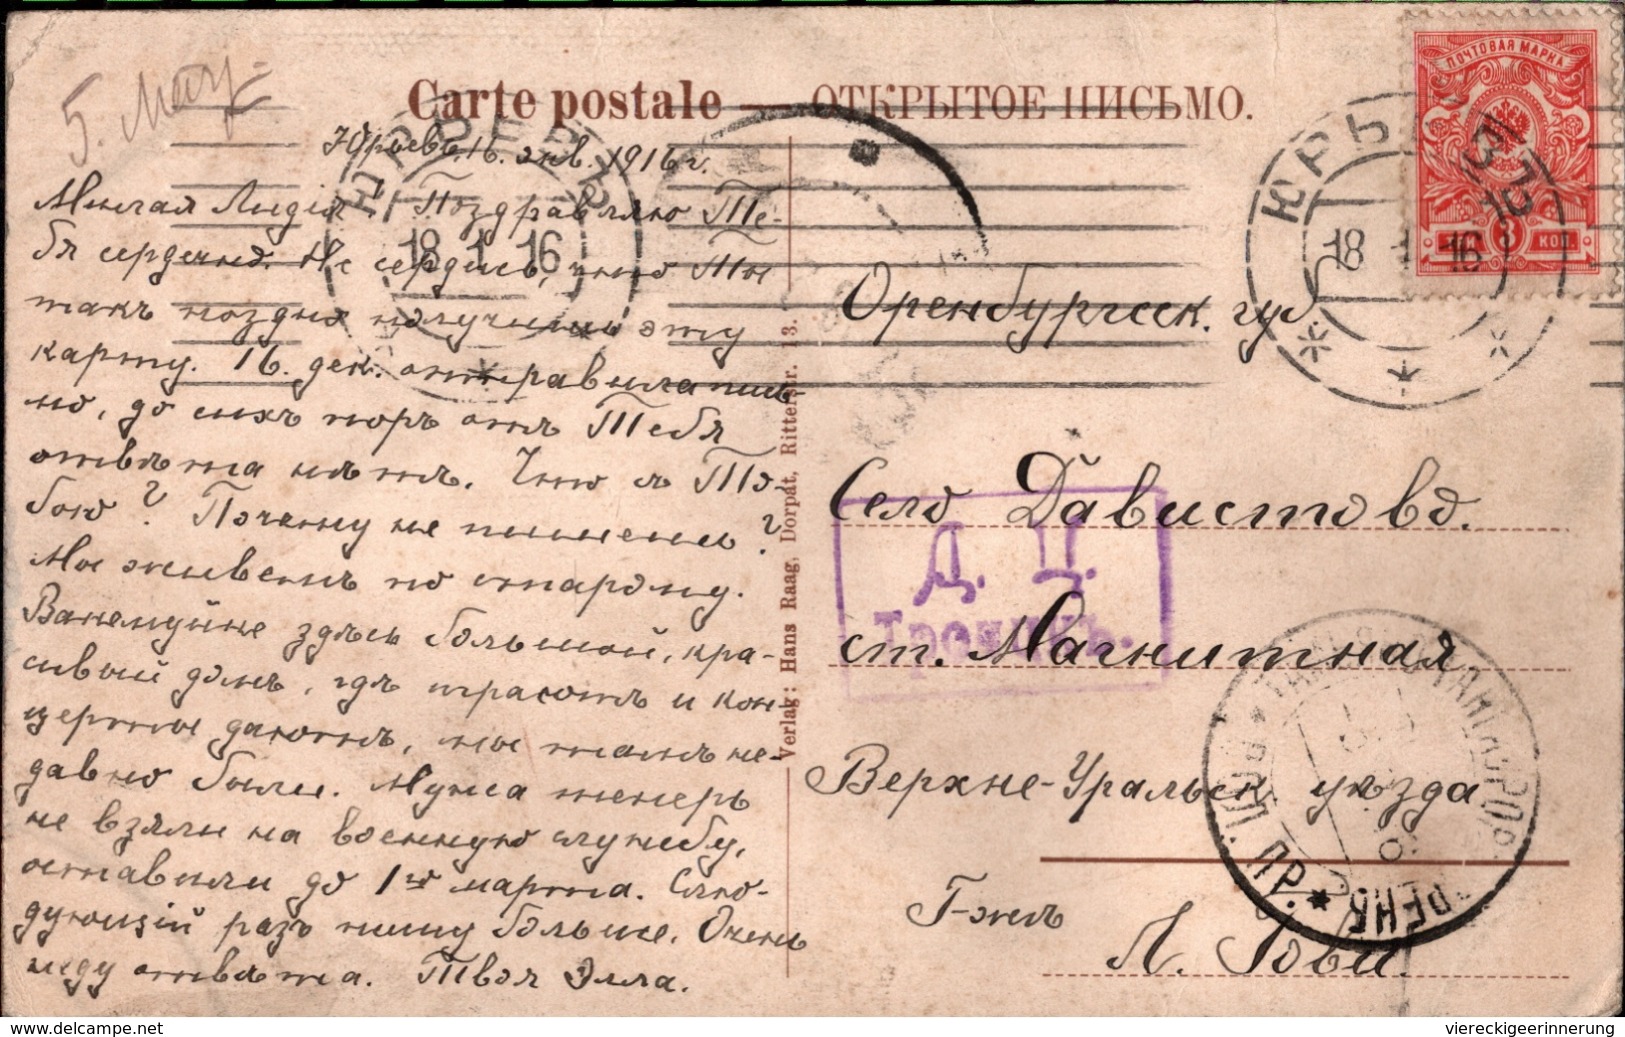 5. Мая
Carte postale — ОТКРЫТОЕ ПИСЬМО.
Юрьевъ. 16. янв. 1916 г.
Милая Лидія! Поздравляю Те-
бя сердечно. Не сердись, что Ты
такъ поздно получишь эту
карту. 16. дек. отправила пись-
мо, до сихъ поръ отъ Тебя
отвѣта нѣтъ. Что съ То-
бою? Почему не пишешь?
Мы живемъ по старому.
Ванемуйне здѣсь большой, кра-
сивый домъ, гдѣ и кон-
церты даютъ, мы тамъ не-
давно были. Мужа теперь
не взяли на военную службу,
оставили до 1го марта. Слѣ-
дующій разъ пишу больше. Очень
жду отвѣта. Твоя Элла.
Verlag: Hans Raag, Dorpat, Ritterstr. 13.
ПОЧТОВАЯ МАРКА
3 КОП.
ЮРЬЕВЪ
18 1 16
ЮРЬ
18 1 16
Оренбургсск. гу
Село Давистово.
Д. Ц.
Троицкъ.
ст. Магнитная.
Верхне-Уральск уѣзда
Г-жѣ
Л. Гови.
ОРЕНБ
viereckigeerinnerung